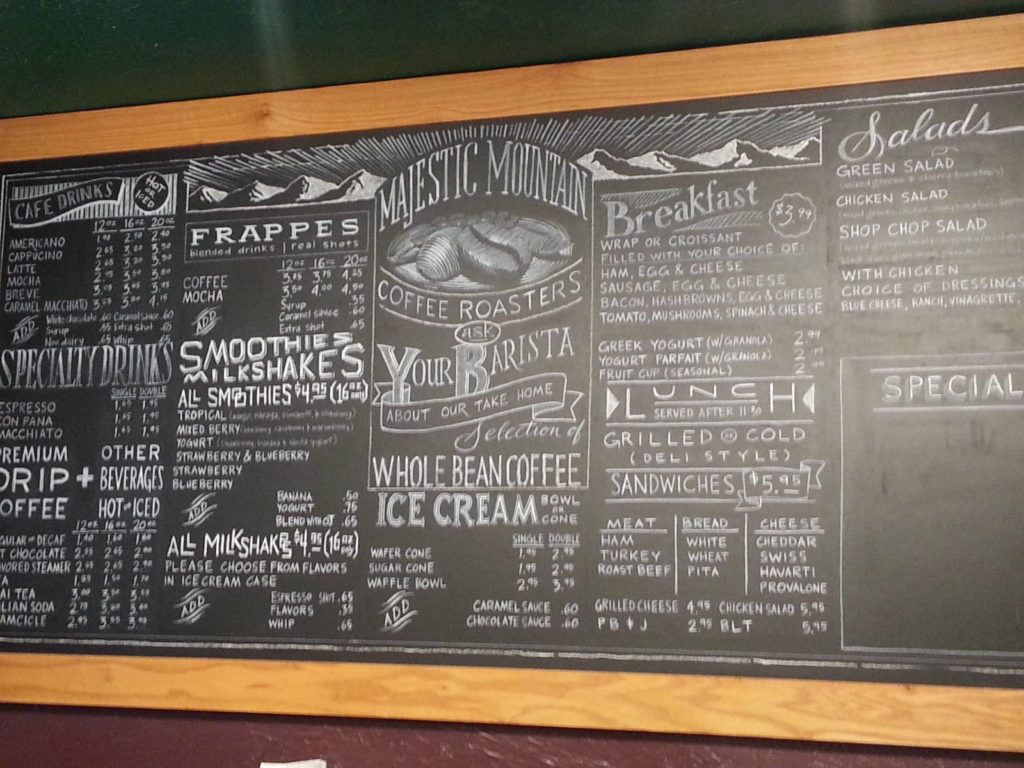 CAFE DRINKS
HOT OR ICED
12 OZ 16 OZ 20 OZ
AMERICANO 1.90 2.30 2.40
CAPPUCINO 2.65 3.20 3.50
LATTE 2.65 3.20 3.50
MOCHA
BREVE
CARAMEL MACCHIATO
ADD
White chocolate .60 Caramel sauce .60
Syrup .35 Extra shot .65
Non dairy .65 Whip .65
SPECIALTY DRINKS
SINGLE DOUBLE
ESPRESSO
CON PANA
MACCHIATO
PREMIUM
DRIP +
COFFEE
OTHER
BEVERAGES
HOT OR ICED
12 OZ 16 OZ 20 OZ
GULAR OR DECAF 1.40 1.60 1.80
T CHOCOLATE 2.25 2.65 2.90
VORED STEAMER 2.25 2.65 2.90
AI TEA
LIAN SODA
AMCICLE
FRAPPES
blended drinks | real shots
12 OZ 16 OZ 20 OZ
COFFEE 3.25 3.75 4.25
MOCHA 3.50 4.00 4.50
ADD
Syrup .35
Caramel sauce .60
Extra shot .65
SMOOTHIES
MILKSHAKES
ALL SMOOTHIES $4.95 (16 OZ ONLY)
TROPICAL
MIXED BERRY
YOGURT
STRAWBERRY & BLUEBERRY
STRAWBERRY
BLUEBERRY
ADD
BANANA .50
YOGURT .75
BLEND WITH OJ .65
ALL MILKSHAKES $4.95 (16 OZ ONLY)
PLEASE CHOOSE FROM FLAVORS
IN ICE CREAM CASE
ADD
ESPRESSO SHOT .65
FLAVORS .35
WHIP .65
MAJESTIC MOUNTAIN
COFFEE ROASTERS
ask
YOUR BARISTA
ABOUT OUR TAKE HOME
Selection of
WHOLE BEAN COFFEE
ICE CREAM BOWL OR CONE
SINGLE DOUBLE
WAFER CONE 1.95 2.95
SUGAR CONE 1.95 2.95
WAFFLE BOWL 2.95 3.95
ADD
CARAMEL SAUCE .60
CHOCOLATE SAUCE .60
Breakfast $3.99
WRAP OR CROISSANT
FILLED WITH YOUR CHOICE OF:
HAM, EGG & CHEESE
SAUSAGE, EGG & CHEESE
BACON, HASHBROWNS, EGG & CHEESE
TOMATO, MUSHROOMS, SPINACH & CHEESE
GREEK YOGURT (W/GRANOLA) 2.99
YOGURT PARFAIT (W/GRANOLA) 2.99
FRUIT CUP (SEASONAL) 2.99
LUNCH
SERVED AFTER 11:30
GRILLED OR COLD
(DELI STYLE)
SANDWICHES $5.95
MEAT BREAD CHEESE
HAM WHITE CHEDDAR
TURKEY WHEAT SWISS
ROAST BEEF PITA HAVARTI
PROVALONE
GRILLED CHEESE 4.95 CHICKEN SALAD 5.95
PB & J 2.95 BLT 5.95
Salads
GREEN SALAD
CHICKEN SALAD
SHOP CHOP SALAD
WITH CHICKEN
CHOICE OF DRESSINGS
BLUE CHEESE, RANCH, VINAGRETTE,
SPECIAL